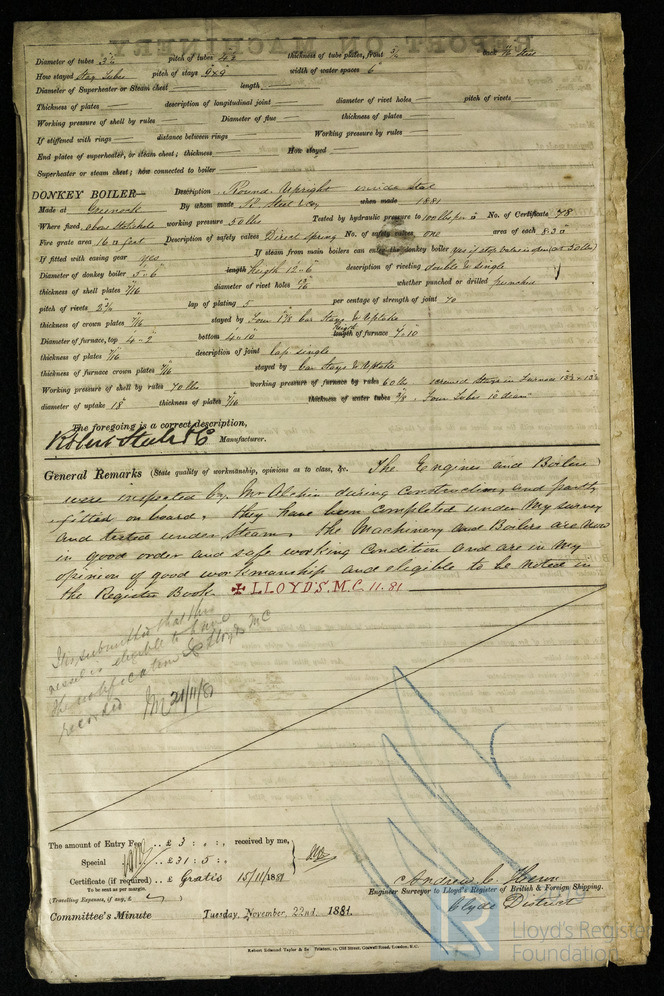 Diameter of tubes 3¼" pitch of tubes thickness of tube plates, front back
How stayed Stay Tubes pitch of stays 9x9 width of water spaces 6"
Diameter of Superheater or Steam chest — length —
Thickness of plates — description of longitudinal joint — diameter of rivet holes — pitch of rivets —
Working pressure of shell by rules — Diameter of flue — thickness of plates —
If stiffened with rings — distance between rings — Working pressure by rules —
End plates of superheater, or steam chest; thickness — How stayed —
Superheater or steam chest; how connected to boiler —
DONKEY BOILER— Description Round Upright inside Steel
Made at Greenock By whom made R. Steel & Coy when made 1881
Where fixed above Stokehole working pressure 50 lbs Tested by hydraulic pressure to 100 lbs per □" No. of Certificate 78
Fire grate area 16 □ feet Description of safety valves Direct Spring No. of safety valves one area of each 8.30
If fitted with easing gear yes If steam from main boilers can enter the donkey boiler yes if stop valve is open (at 50 lbs)
Diameter of donkey boiler 5'-6" length height 12'-6" description of riveting double & single
thickness of shell plates 7/16 diameter of rivet holes whether punched or drilled punched
pitch of rivets 2¾ lap of plating 5 per centage of strength of joint 70
thickness of crown plates 7/16 stayed by Four 1⅞ bar Stays & Uptake
Diameter of furnace, top 4'-2" bottom 4'-10" length height of furnace 7'-10"
thickness of plates 7/16 description of joint lap single
thickness of furnace crown plates 7/16 stayed by bar Stays & Uptake
Working pressure of shell by rules 70 lbs working pressure of furnace by rules 60 lbs screwed Stays in Furnace
diameter of uptake 15" thickness of plates 7/16 thickness of water tubes 3/8 Four Tubes 10 diamr
The foregoing is a correct description,
Robert Steele & Co Manufacturer.
General Remarks (State quality of workmanship, opinions as to class, &c. The Engines and Boilers
were inspected by Mr Alchin during Construction, and partly
fitted on board. they have been completed under My survey
and tested under Steam, the Machinery and Boilers are now
in good order and safe working Condition and are in My
opinion of good workmanship and eligible to be noted in
the Register Book ✠ LLOYD'S. M.C. 11.81
It is submitted that this
vessel is eligible to have
the notification ✠ Lloyds MC
recorded
21/11/81
The amount of Entry Fee .. £ 3 : „ : „ received by me,
Special .. £ 31 : 5 : „
Certificate (if required) .. £ Gratis 15/11/1881
To be sent as per margin.
(Travelling Expenses, if any, £ )
Andrew C. Heron
Engineer Surveyor to Lloyd's Register of British & Foreign Shipping.
Clyde District
Committee's Minute Tuesday, November, 22nd, 1881.
Lloyd's Register
Foundation